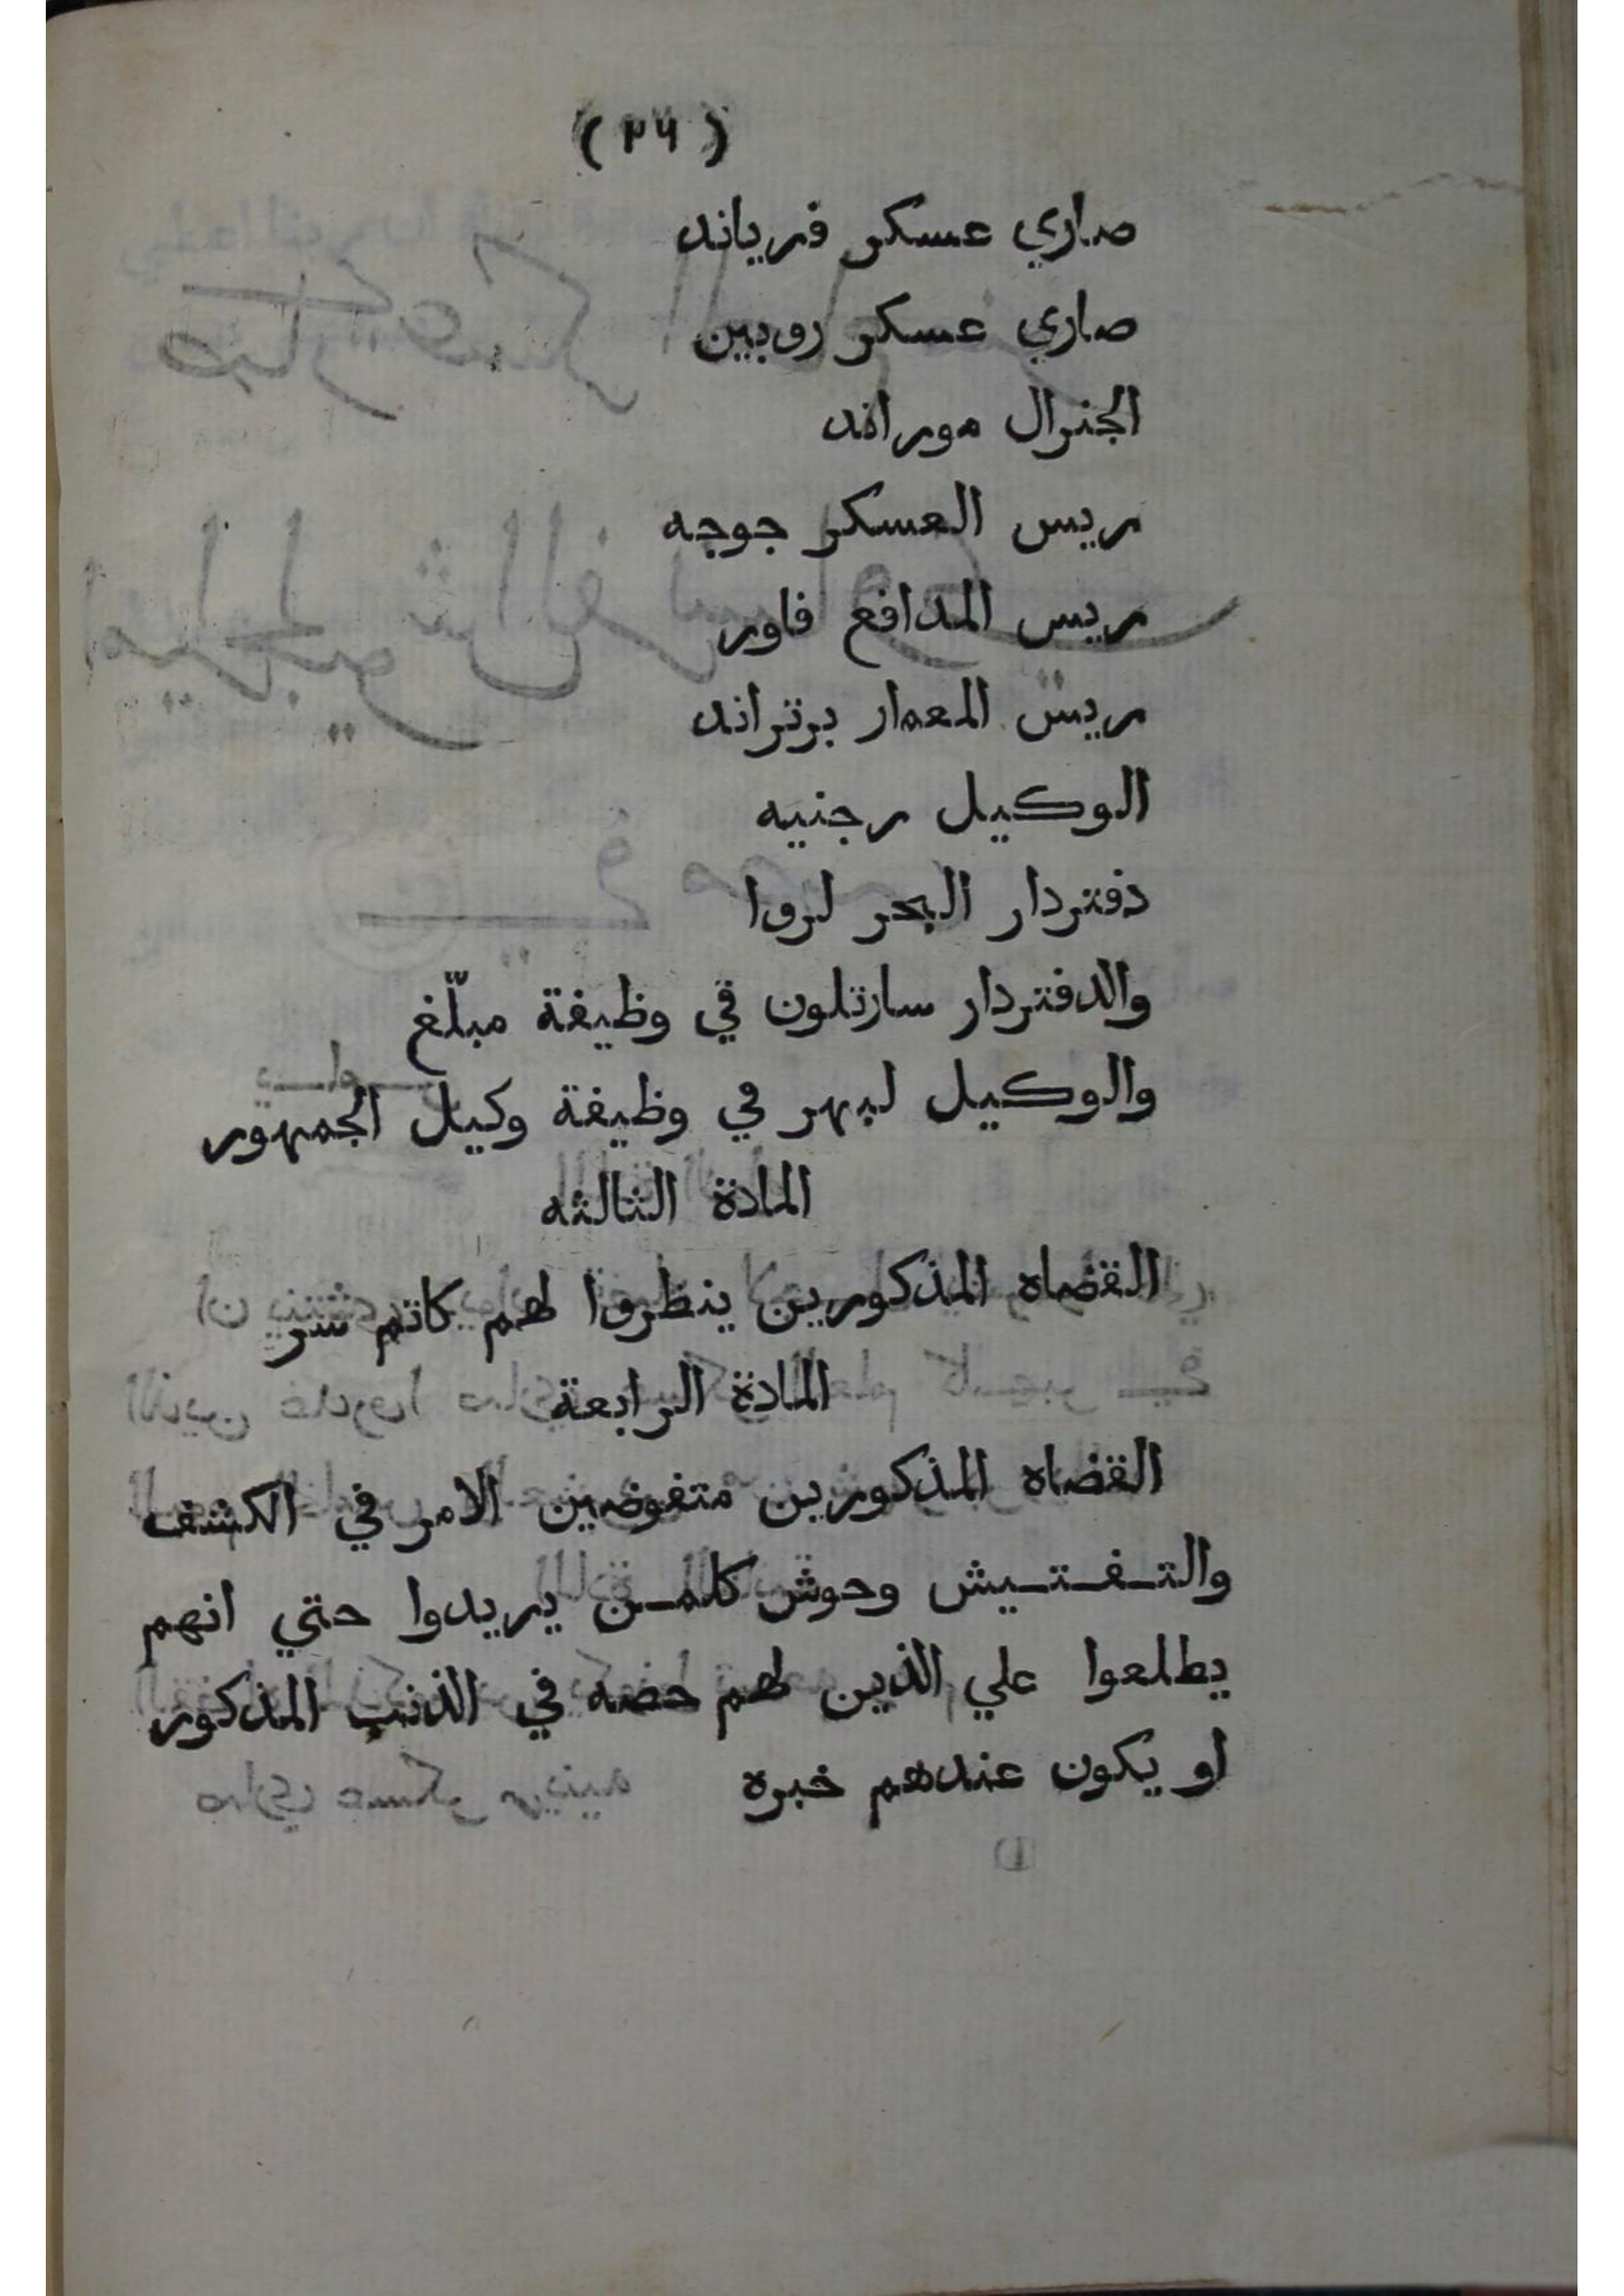 (٢٦)
صاري عسكر فرياند
صاري عسكر روبين
الجنرال موراند
ريس العسكر جوجه
ريس المدافع فاور
ريس المعمار برتراند
الوكيل رجنيه
دفتردار البحر لروا
والدفتردار سارتلون في وظيفة مبلّغ
والوكيل لبهر في وظيفة وكيل الجمهور
المادة الثالثه
القضاه المذكورين ينظروا لهم كاتم سر
المادة الرابعة
القضاه المذكورين متفوضين الامر في الكشف
والتـفـتـيش وحوش كلمـن يريدوا حتي انهم
يطلعوا علي الذين لهم حصه في الذنب المذكور
او يكون عندهم خبره